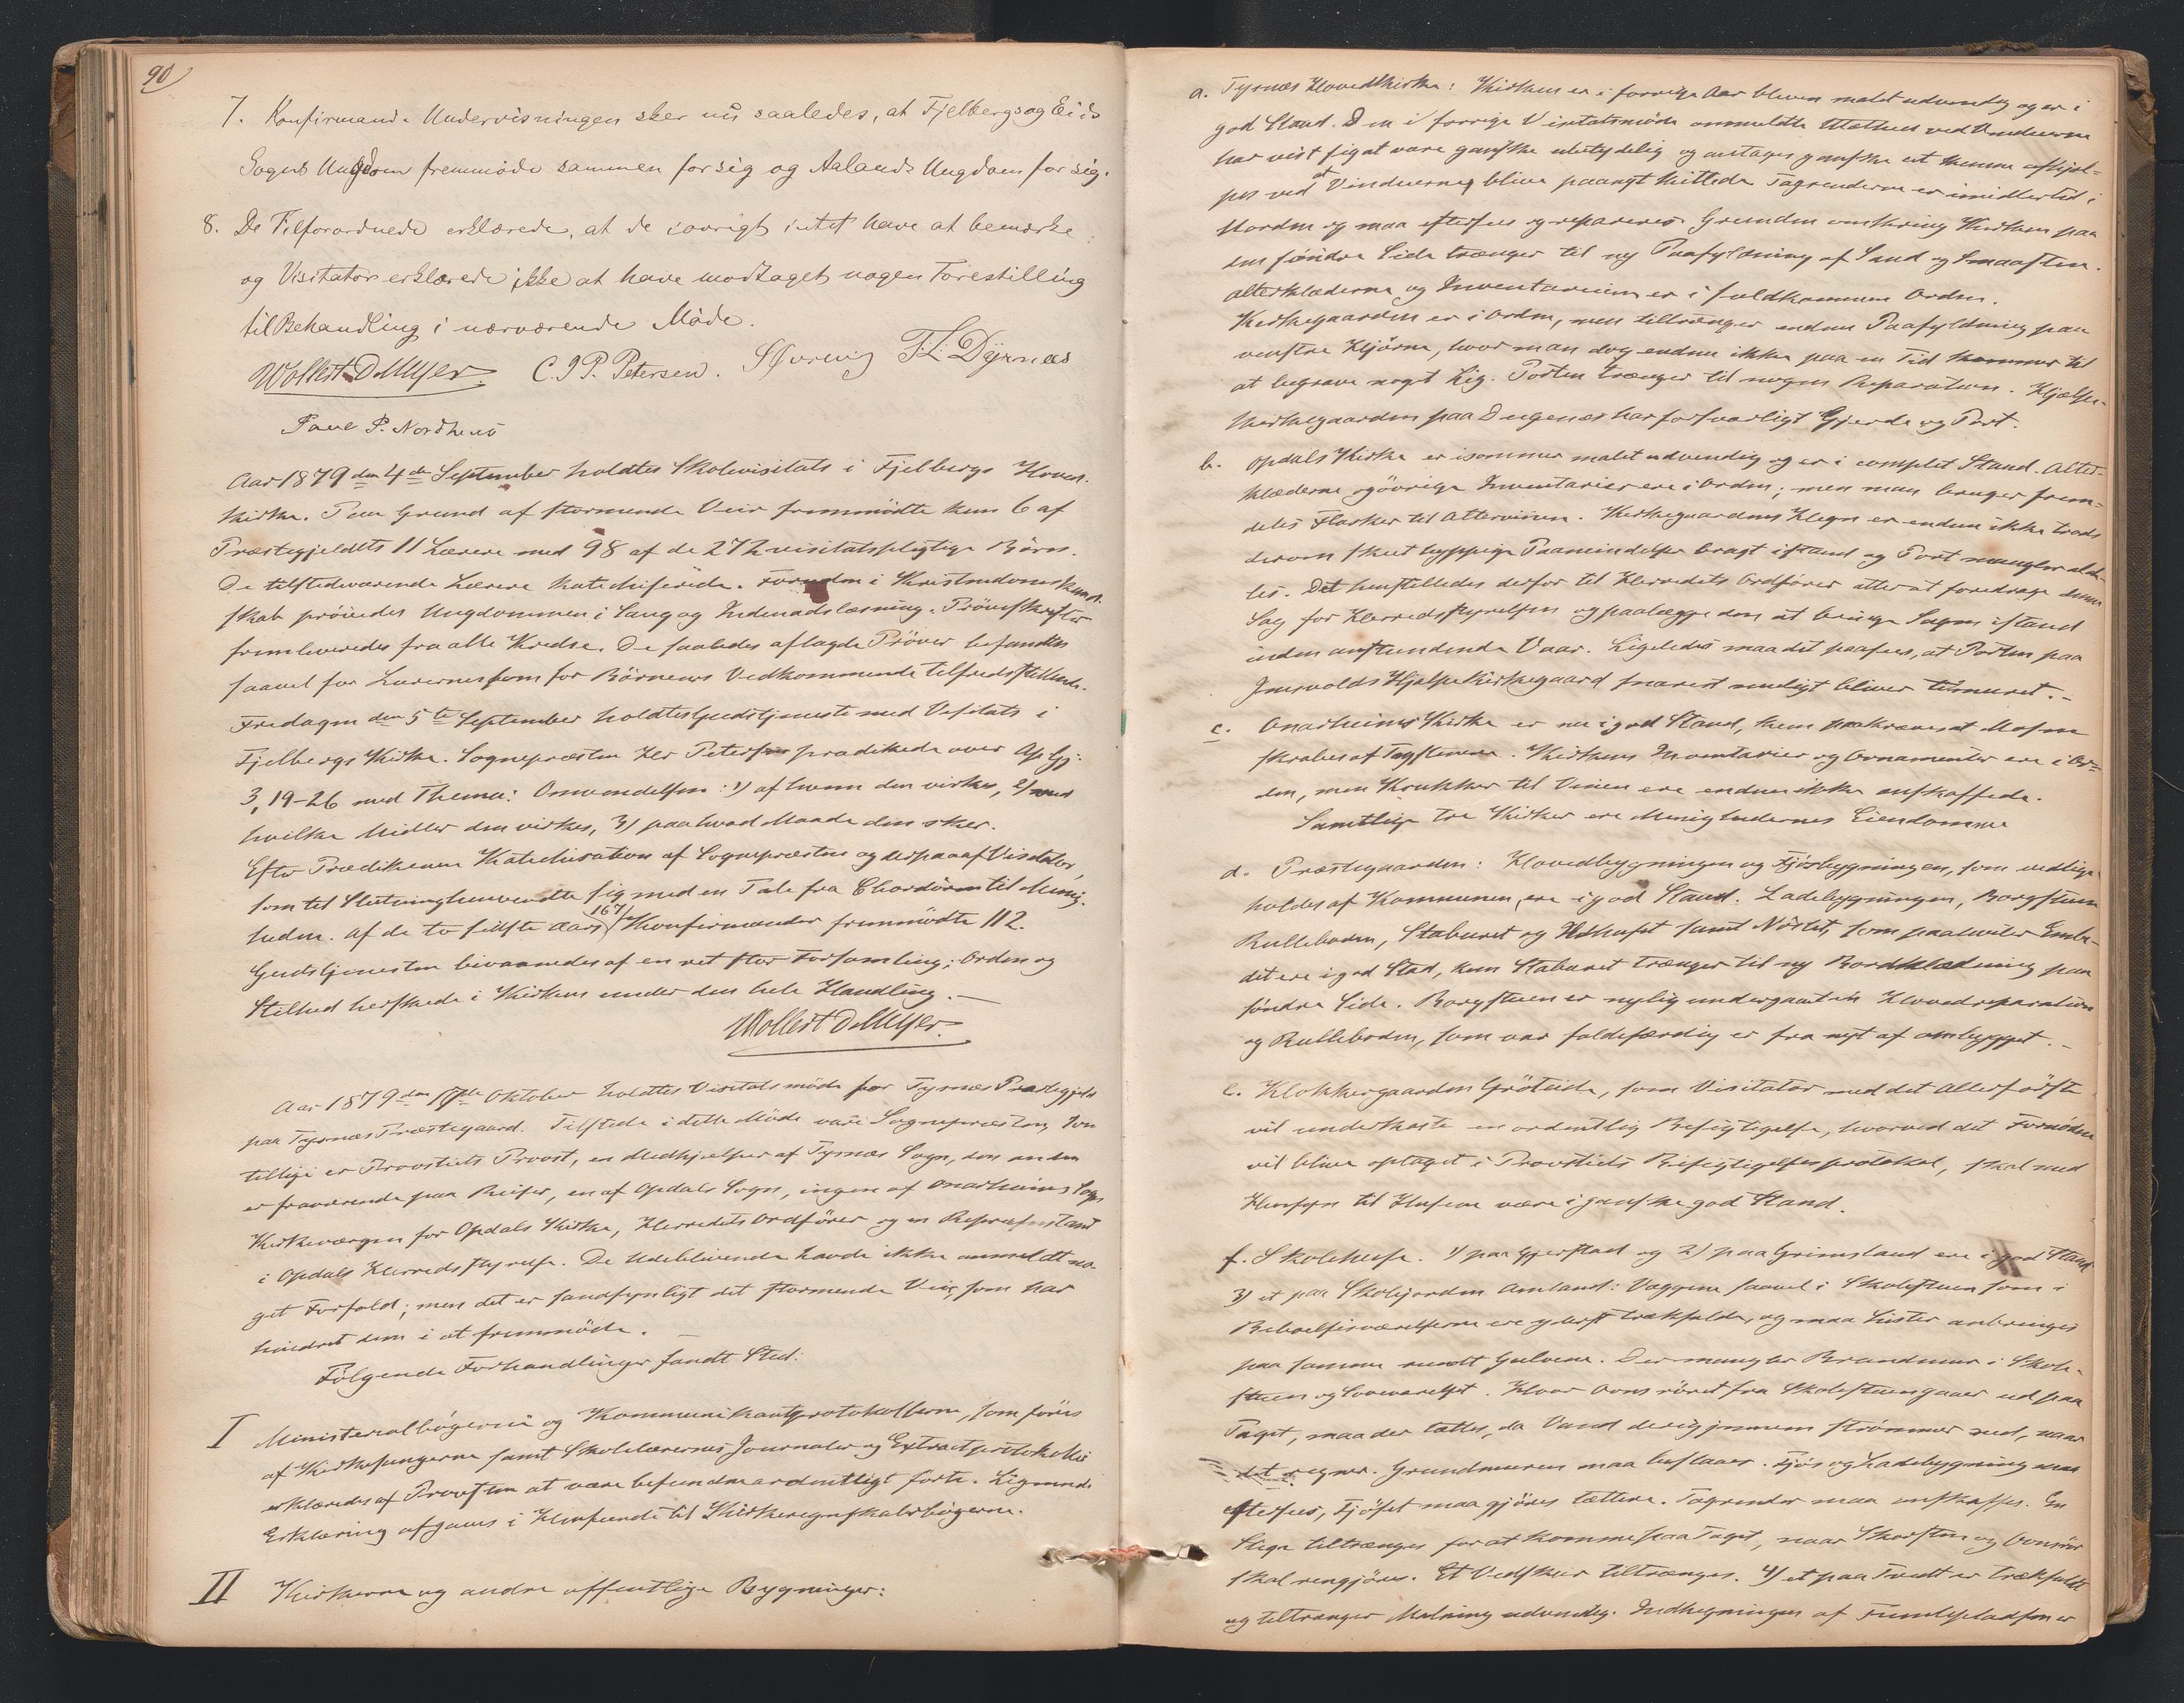 90
7. Konfirmand-Undervisningen sker nu saaledes, at Fjelbergs og Eids
Sogns Ungdom fremmøde sammen for sig og Aalands Ungdom for sig.
8. De Tilforordnede erklærede, at de iøvrigt intet have at bemærke
og Visitator erklærede ikke at have modtaget nogen Forestilling
til Behandling i nærværende Møde.
Wollert D Meyer. C. J P. Petersen. T. L. Dyrnæs
Povel P. Nordhuus
Aar 1879 den 4de September holdtes Skolevisitats i Fjelbergs Hoved-
kirke. Paa Grund af stormende Veir fremmødte kun 6 af
Præstegjeldets 11 Lærere med 98 af de 272 visitatspligtige Børn.
De tilstedeværende Lærere katechiserede. Foruden i Kristendomskund-
skab prøvedes Ungdommen i Sang og Indenadslæsning. Prøveskrifter
fremleveredes fra alle Kredse. De saaledes aflagde Prøver befandtes
saavel for Lærernes som for Børnenes Vedkommende tilfredsstillende.
Fredagen den 5te September holdtes Gudstjeneste med Visitats i
Fjelbergs Kirke. Sognepræsten Hr Petersen prædikede over Ap. Gj:
3, 19-26 med Thema: Omvendelsen: 1) af hvem den virkes, 2) ved
hvilke Midler den virkes, 3) paa hvad Maade den sker.
Efter Prædikenen Katechisation af Sognepræsten og derpaa af Visitator,
som til Slutning henvendte sig med en Tale fra Chordøren til Menig-
heden. Af de to sidste Aars 167 Konfirmander fremmødte 112.
Gudstjenesten bivaanedes af en ret stor Forsamling; Orden og
Stilhed herskede i Kirken under den hele Handling. —
Wollert D Meyer.
Aar 1879 den Oktober holdtes Visitatsmøde for Tysnæs Præstegjeld
paa Tysnæs Præstegaard. Tilstede i dette Møde vare Sognepræsten, som
tillige er Provstiets Provst, en Medhjælper af Tysnæs Sogn, den anden
er fraværende paa Reiser, en af Opdals Sogn, ingen af Onarheims Sogn
Kirkeværgen for Opdals Kirke, Herredets Ordfører og en Repræsentant
i Opdals Herredsstyrelse. De Udeblivende havde ikke anmeldt no-
get Forfald; men det er sandsynligt det stormende Veir, som har
hindret dem i at fremmøde. —
Følgende Forhandlinger fandt Sted:
I Ministerialbøgerne og Kommunikantprotokollerne, som føres
af Kirkesangerne samt Skolelærernes Journaler og Extractprotokoller
erklæredes af Provsten at være befundne ordentligt førte. Lignende
Erklæring afgaves i Henseende til Kirkeregnskabsbøgerne.
II Kirkerne og andre offentlige Bygninger:
a. Tysnæs Hovedkirke: Kirken er i forrige Aar bleven malet udvendig og er i
god Stand. Den i forrige Visitatsmøde anmeldte Utæthed ved Vinduerne
har vist sig at være ganske ubetydelig og antages ganske at kunne afhjæl-
pes ved at Vinduerne blive paanyt kittede. Tagrenderne er imidlertid i
Uorden og maa eftersees og repareres. Grunden omkring Kirken paa
den søndre Side trænger til ny Paafyldning af Sand og Smaasten.
Alterklæderne og Inventarium er i fuldkommen Orden.
Kirkegaarden er i Orden, men tiltrænger endnu Paafyldning paa
venstre Hjørne, hvor man dog endnu ikke paa en Tid kommer til
at begrave noget Lig. Porten trænger til nogen Reparation. Hjælpe-
kirkegaarden paa har forsvarligt Gjerde og Port.
b. Opdals Kirke er isommer malet udvendig og er i complet Stand. Alter-
klæderne og øvrige Inventarier ere i Orden; men man bruger frem-
deles Flasker til Altervinen. Kirkegaardens Hegn er endnu ikke trods
derom skeet hyppige Paamindelser bragt istand og Port mangler alde-
les. Det henstilledes derfor til Herredets Ordfører atter at foredrage denne
Sag for Herredsstyrelsen og paalægge den at bringe Sagen istand
inden anstundende Vaar. Ligeledes maa det paasees, at Porten paa
Hjælpekirkegaard snarest muligt bliver
c. Onarheims Kirke er nu i god Stand, kun paakræves at Mosen
skrabes af Tagstenene. Kirkens Inventarier og Ornamenter ere i Or-
den, men Krukker til Vinen ere endnu ikke anskaffede.
Samtlige tre Kirker ere Menighedernes Eiendomme
d. Præstegaarden: Hovedbygningen og Fjøsbygningen, som vedlige-
holdes af Kommunen, ere i god Stand. Ladebygningen, Borgstuen
Rulleboden, Staburet og Ildhuset samt Nøstet, som paahviler Embe-
det ere i god Stad, kun Staburet trænger til ny Bordklædning paa
søndre Side. Borgstuen er nylig undergaaet en Hovedreparation
og Rulleboden, som var faldefærdig er fra nyt af ombygget. —
e. Klokkergaarden Grøteide, som Visitator med det Allerførste
vil underkaste en ordentlig Besigtigelse, hvorved det Fornødne
vil blive optaget i Provstiets Besigtigelsesprotokol, skal med
Hensyn til Husene være i ganske god Stand.
f. Skolehuse. 1) paa Gjerstad og 2) paa Grimsland ere i god Stand
3) et paa Skolejorden Amland: Væggene saavel i Skolestuen som i
Beboelsesværelserne ere yderst trækfulde, og maa Lister anbringes
paa samme rundt Gulvene. Der mangler Brandmur i Skole-
stuen og Soveværelset. Hvor Ovnsrøret fra Skolestuen gaaer ud paa
Taget, maa der tættes, da Vand derigjennem strømmer ned, naar
det regner. Grundmuren maa Fjøs og Ladebygning maa
eftersees, Fjøset maa gjøres tættere. Tagrender maa anskaffes. En
Stige tiltrænges for at komme paa Taget, naar Skorsten og Ovnsrør
skal rengjøres. Et Vedskur tiltrænges. 4) et paa Tvedt er trækfuldt
og tiltrænger Maling udvendig. Indhegningen af er